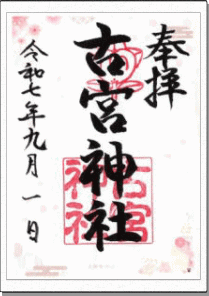 奉拝
古宮神社
令和七年九月一日
古宮
神社